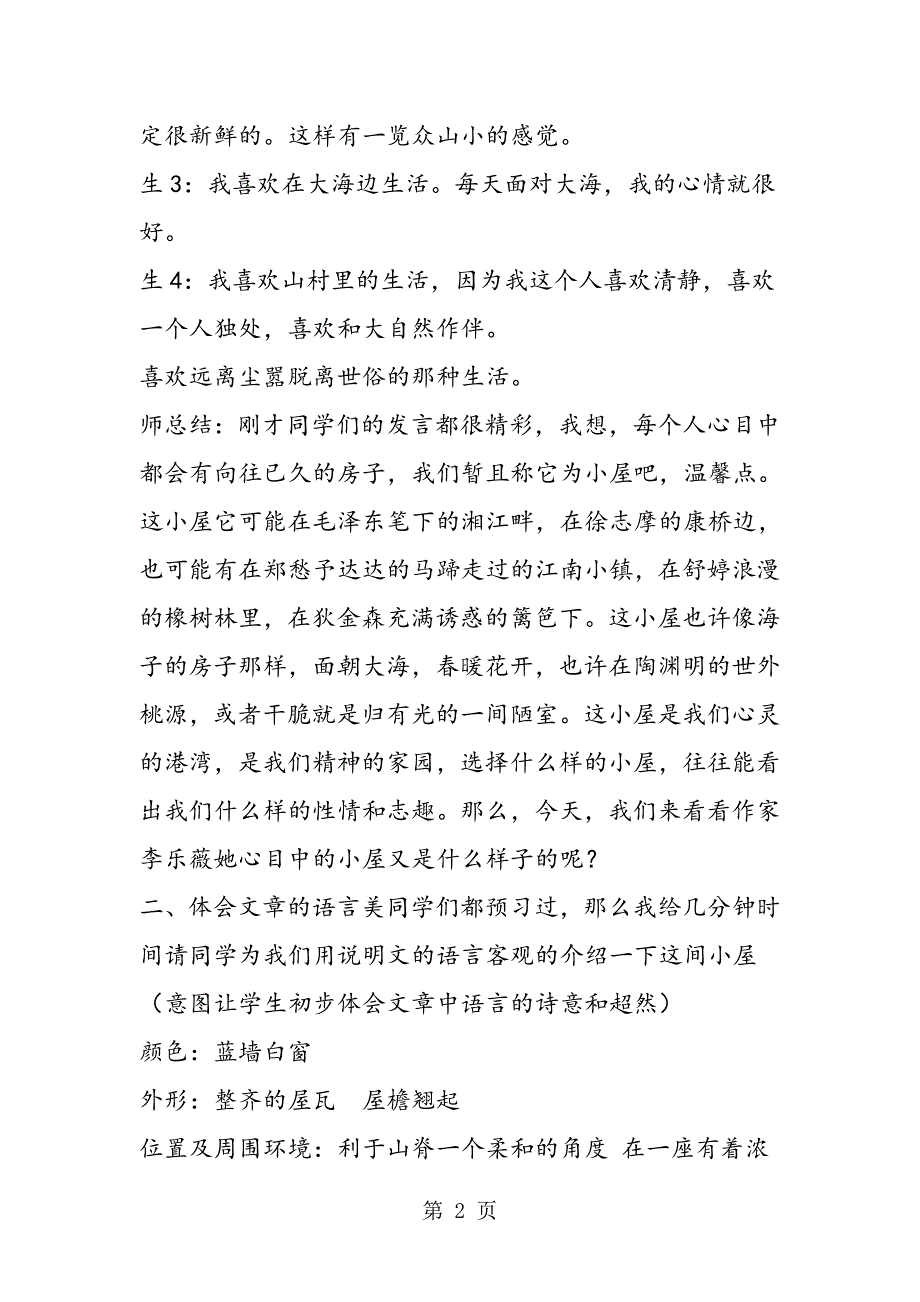 定很新鲜的。这样有一览众山小的感觉。
生3：我喜欢在大海边生活。每天面对大海，我的心情就很
好。
生4：我喜欢山村里的生活，因为我这个人喜欢清静，喜欢
一个人独处，喜欢和大自然作伴。
喜欢远离尘嚣脱离世俗的那种生活。
师总结：刚才同学们的发言都很精彩，我想，每个人心目中
都会有向往已久的房子，我们暂且称它为小屋吧，温馨点。
这小屋它可能在毛泽东笔下的湘江畔，在徐志摩的康桥边，
也可能有在郑愁予达达的马蹄走过的江南小镇，在舒婷浪漫
的橡树林里，在狄金森充满诱惑的篱笆下。这小屋也许像海
子的房子那样，面朝大海，春暖花开，也许在陶渊明的世外
桃源，或者干脆就是归有光的一间陋室。这小屋是我们心灵
的港湾，是我们精神的家园，选择什么样的小屋，往往能看
出我们什么样的性情和志趣。那么，今天，我们来看看作家
李乐薇她心目中的小屋又是什么样子的呢？
二、体会文章的语言美同学们都预习过，那么我给几分钟时
间请同学为我们用说明文的语言客观的介绍一下这间小屋
（意图让学生初步体会文章中语言的诗意和超然）
颜色：蓝墙白窗
外形：整齐的屋瓦　屋檐翘起
位置及周围环境：利于山脊一个柔和的角度 在一座有着浓
第 2 页